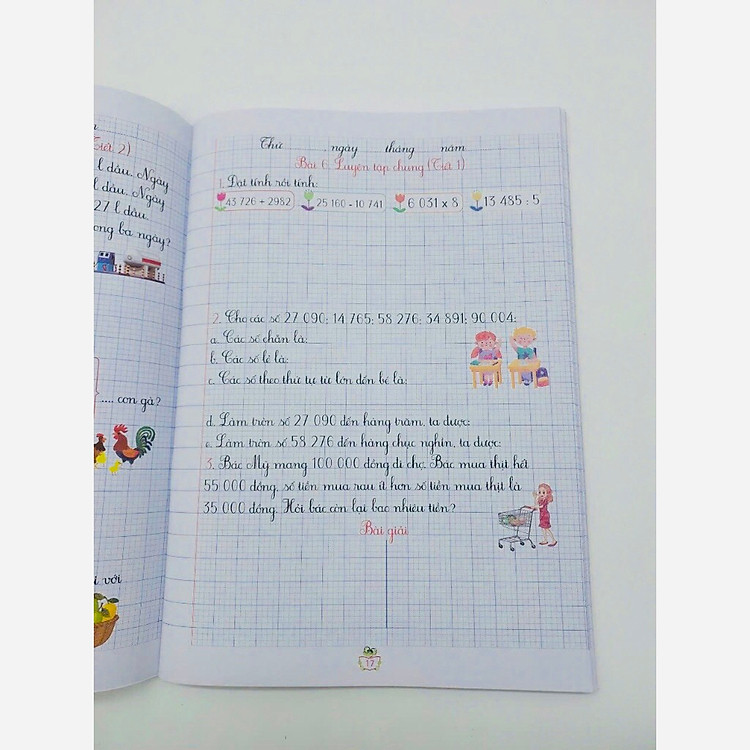 Tiết 2)
l dầu. Ngày
l dầu. Ngày
27 l dầu.
ong ba ngày?
.... con gà?
i với
Thứ ngày tháng năm
Bài 6. Luyện tập chung (Tiết 1)
1. Đặt tính rồi tính:
43 726 + 2982 25 160 - 10 741 6 031 x 8 13 485 : 5
2. Cho các số 27 090; 14 765; 58 276; 34 891; 90 004:
a. Các số chẵn là:
b. Các số lẻ là:
c. Các số theo thứ tự từ lớn đến bé là:
d. Làm tròn số 27 090 đến hàng trăm, ta được:
e. Làm tròn số 58 276 đến hàng chục nghìn, ta được:
3. Bác Mỹ mang 100 000 đồng đi chợ. Bác mua thịt hết
55 000 đồng, số tiền mua rau ít hơn số tiền mua thịt là
35 000 đồng. Hỏi bác còn lại bao nhiêu tiền?
Bài giải
17